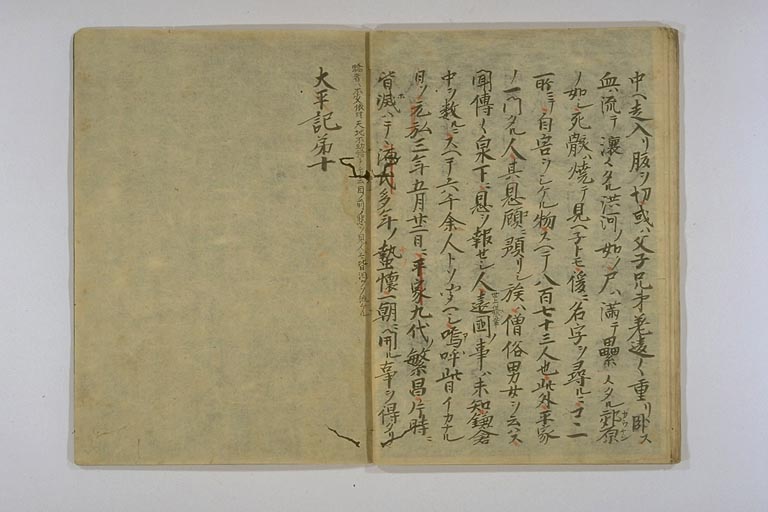 中ヘ走入リ腹ヲ切或ハ父子兄弟差違ヘ重リ臥ス
血ハ流テ瀼々タル洪河ノ如ク尸ハ満テ累々タル郊原
ノ如シ死骸ハ焼テ見ヘ子トモ後ニ名字ヲ尋ルニコヽニ
一所ニテ自害ヲシケル物スヘテ八百七十三人也此外平家
ノ一門タル人其恩顧ニ預リシ族ハ僧俗男女ヲ云ハス
聞傳ヘ泉下ニ恩ヲ報セシ人遠国ノ事ハ未知鎌倉
中ヲ数ルニスヘテ六千余人トソ聞ヘシ嗚呼此日イカナル
日ソ元弘三年五月廿二日ニ平家九代ノ繁昌片時ニ
皆滅ハテ源氏多年ノ蟄懐一朝ニ開ル事ヲ得タリ
驕者ハ不久儀ハ天地不助
太平記第十